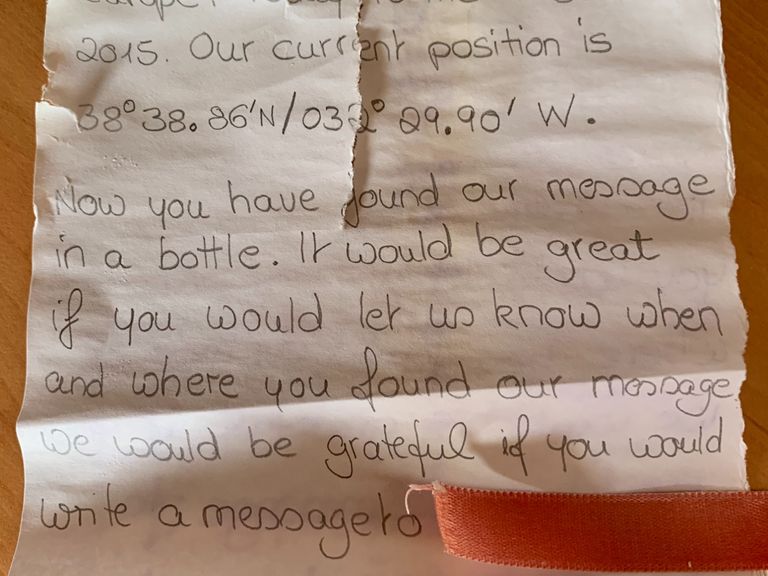 2015. Our current position is
38°38.86'N/032° 29.90' W.
Now you have found our message
in a bottle. It would be great
if you would let us know when
and where you found our message
we would be grateful if you would
write a message to